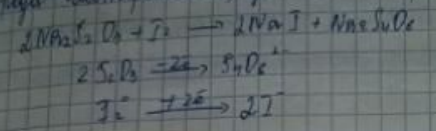 2Na2S2O3 + I2 → 2NaI + Na2S4O6
2S2O3 -2ē→ S4O6²⁻
I2 +2ē→ 2I⁻